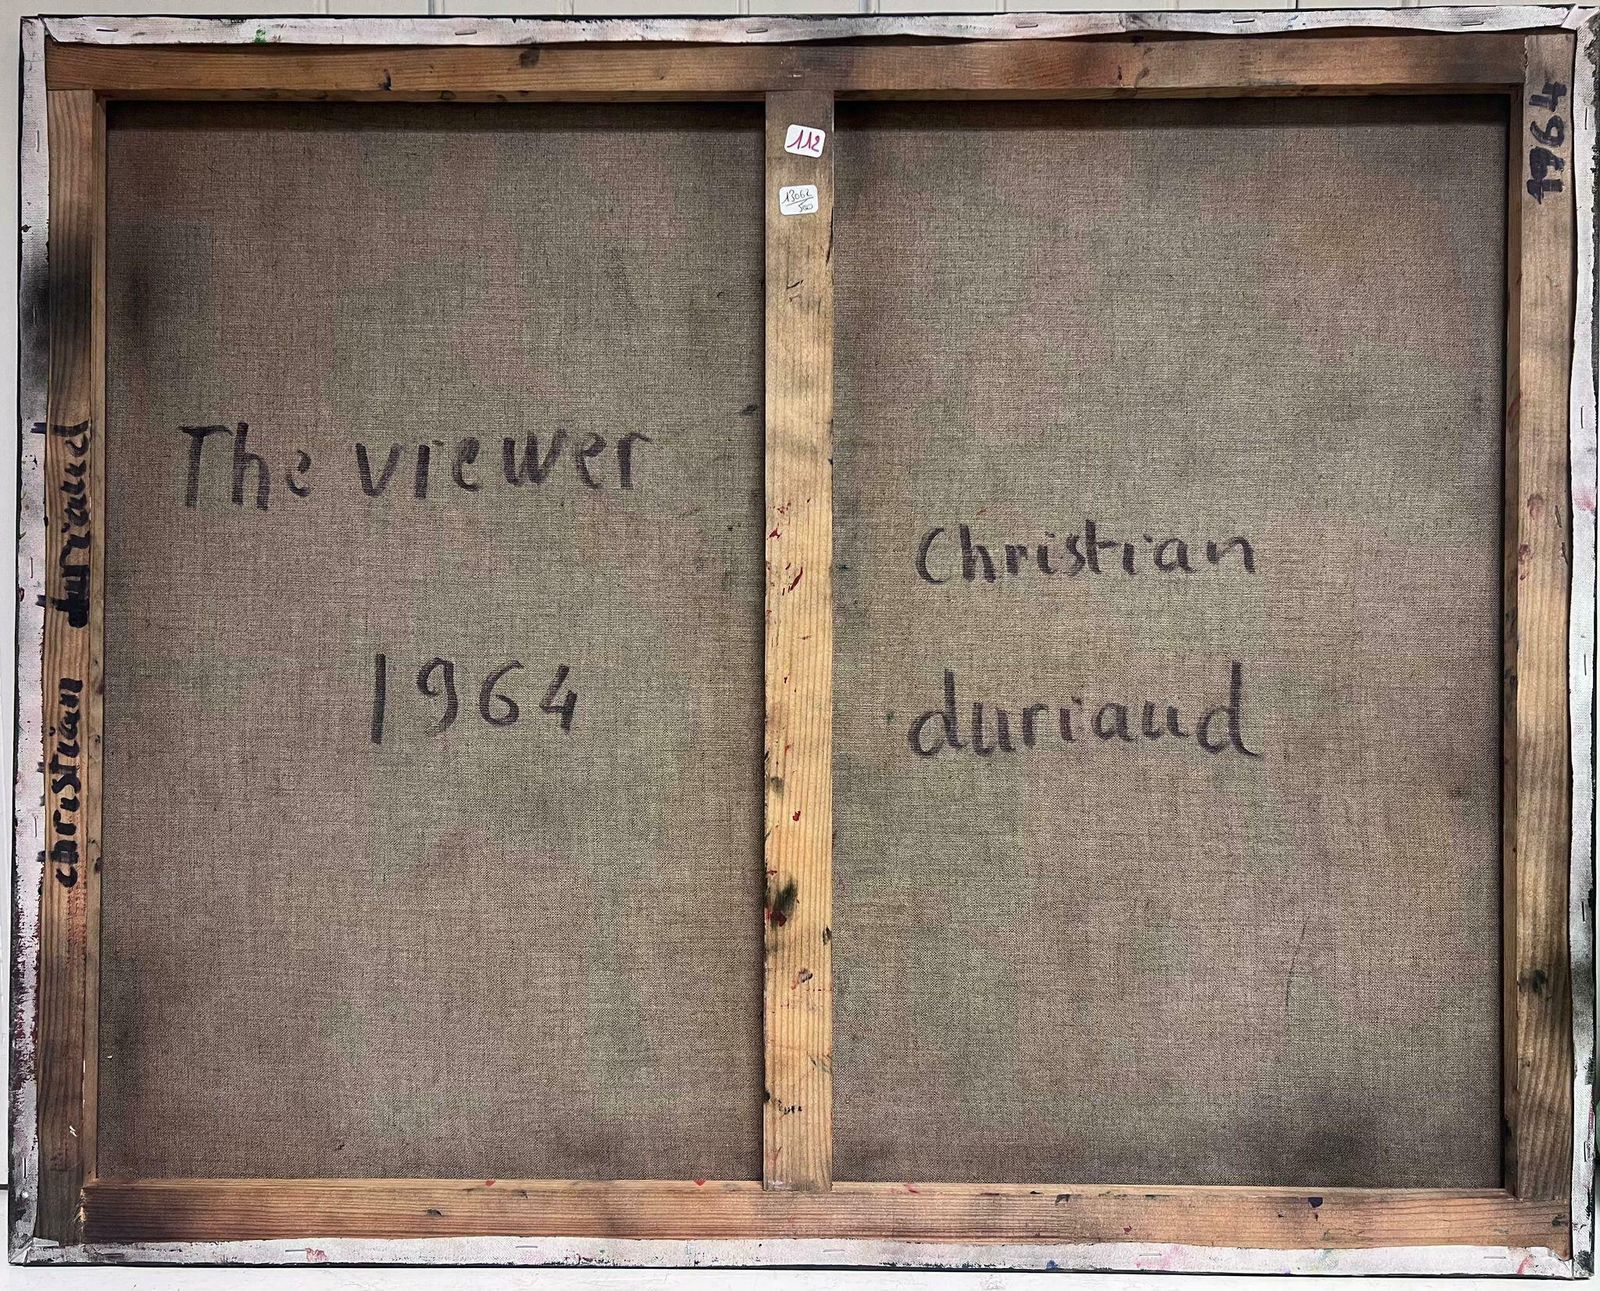 112
13062
500
1964
The viewer
1964
Christian
duriaud
christian duriaud